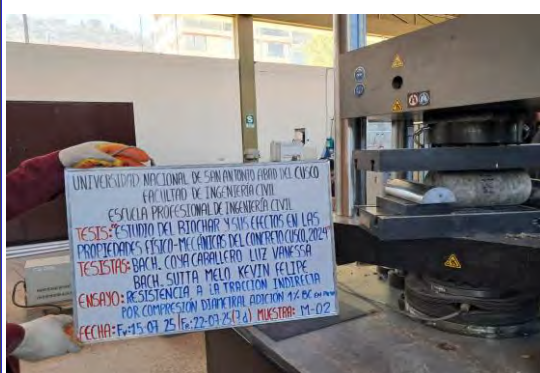 UNIVERSIDAD NACIONAL DE SAN ANTONIO ABAD DEL CUSCO
FACULTAD DE INGENIERÍA CIVIL
ESCUELA PROFESIONAL DE INGENIERÍA CIVIL
TESIS: "ESTUDIO DEL BIOCHAR Y SUS EFECTOS EN LAS
PROPIEDADES FÍSICO-MECÁNICAS DEL CONCRETO, CUSCO, 2024"
TESISTAS: BACH. COYA CABALLERO LUZ VANESSA
BACH. SUTTA MELO KEVIN FELIPE
ENSAYO: RESISTENCIA A LA TRACCIÓN INDIRECTA
POR COMPRESIÓN DIAMETRAL ADICIÓN 1% BC
FECHA: Fv:15-07-25 | Fe:22-07-25 (7d) MUESTRA: M-02
S